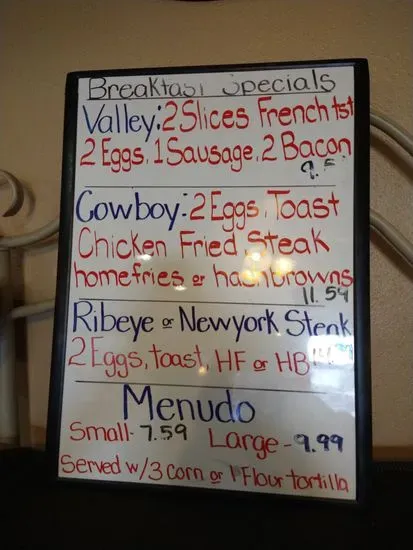 Breakfast Specials
Valley: 2 Slices French tst
2 Eggs, 1 Sausage, 2 Bacon
Cowboy: 2 Eggs, Toast
Chicken Fried Steak
homefries or hashbrowns
11.59
Ribeye or Newyork Steak
2 Eggs, toast, HF or HB
Menudo
Small - 7.59 Large - 9.99
Served w/3 corn or 1 Flour tortilla